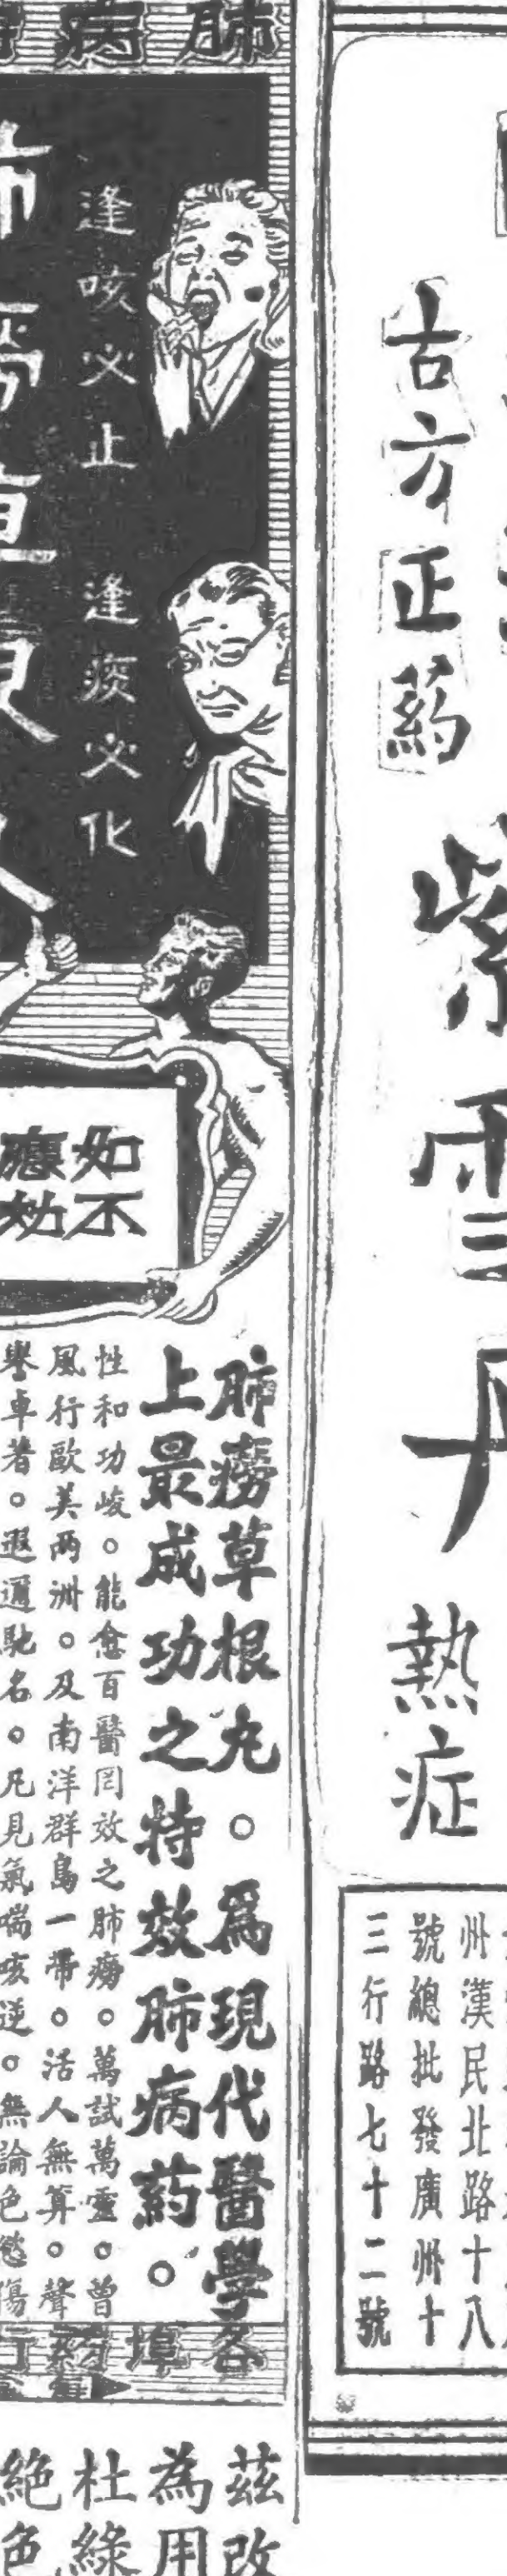 古方正葯
紫雪丹
熱症
州漢民北路十八
號總批發廣州十
三行路七十二號
肺病
逢咳必止 逢痰必化
如不
應効
肺癆草根丸。為現代醫學
上最成功之特效肺病葯。
性和功峻。能愈百醫罔效之肺癆。萬試萬靈。曾
風行歐美兩洲。及南洋群島一帶。活人無算。聲
譽卓著。遐邇馳名。凡見氣喘咳逆。無論色慾傷
各埠葯行
茲改
為用
杜綠
絕色